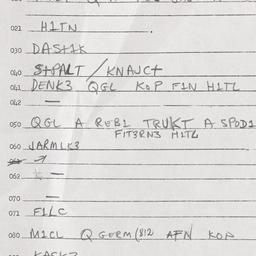 021 H1TN
030 DAS+1K
040 S+PALT / KNAUC+
041 DENK3 QGL KOP F1N H1TL
042 —
050 QGL A REB1 TRUKT A SPOD1
F1T3RN3 H1TL
060 JARMLK3
062 —
070 —
071 F1LC
080 M1CL Q GERM(812 AFN KOP